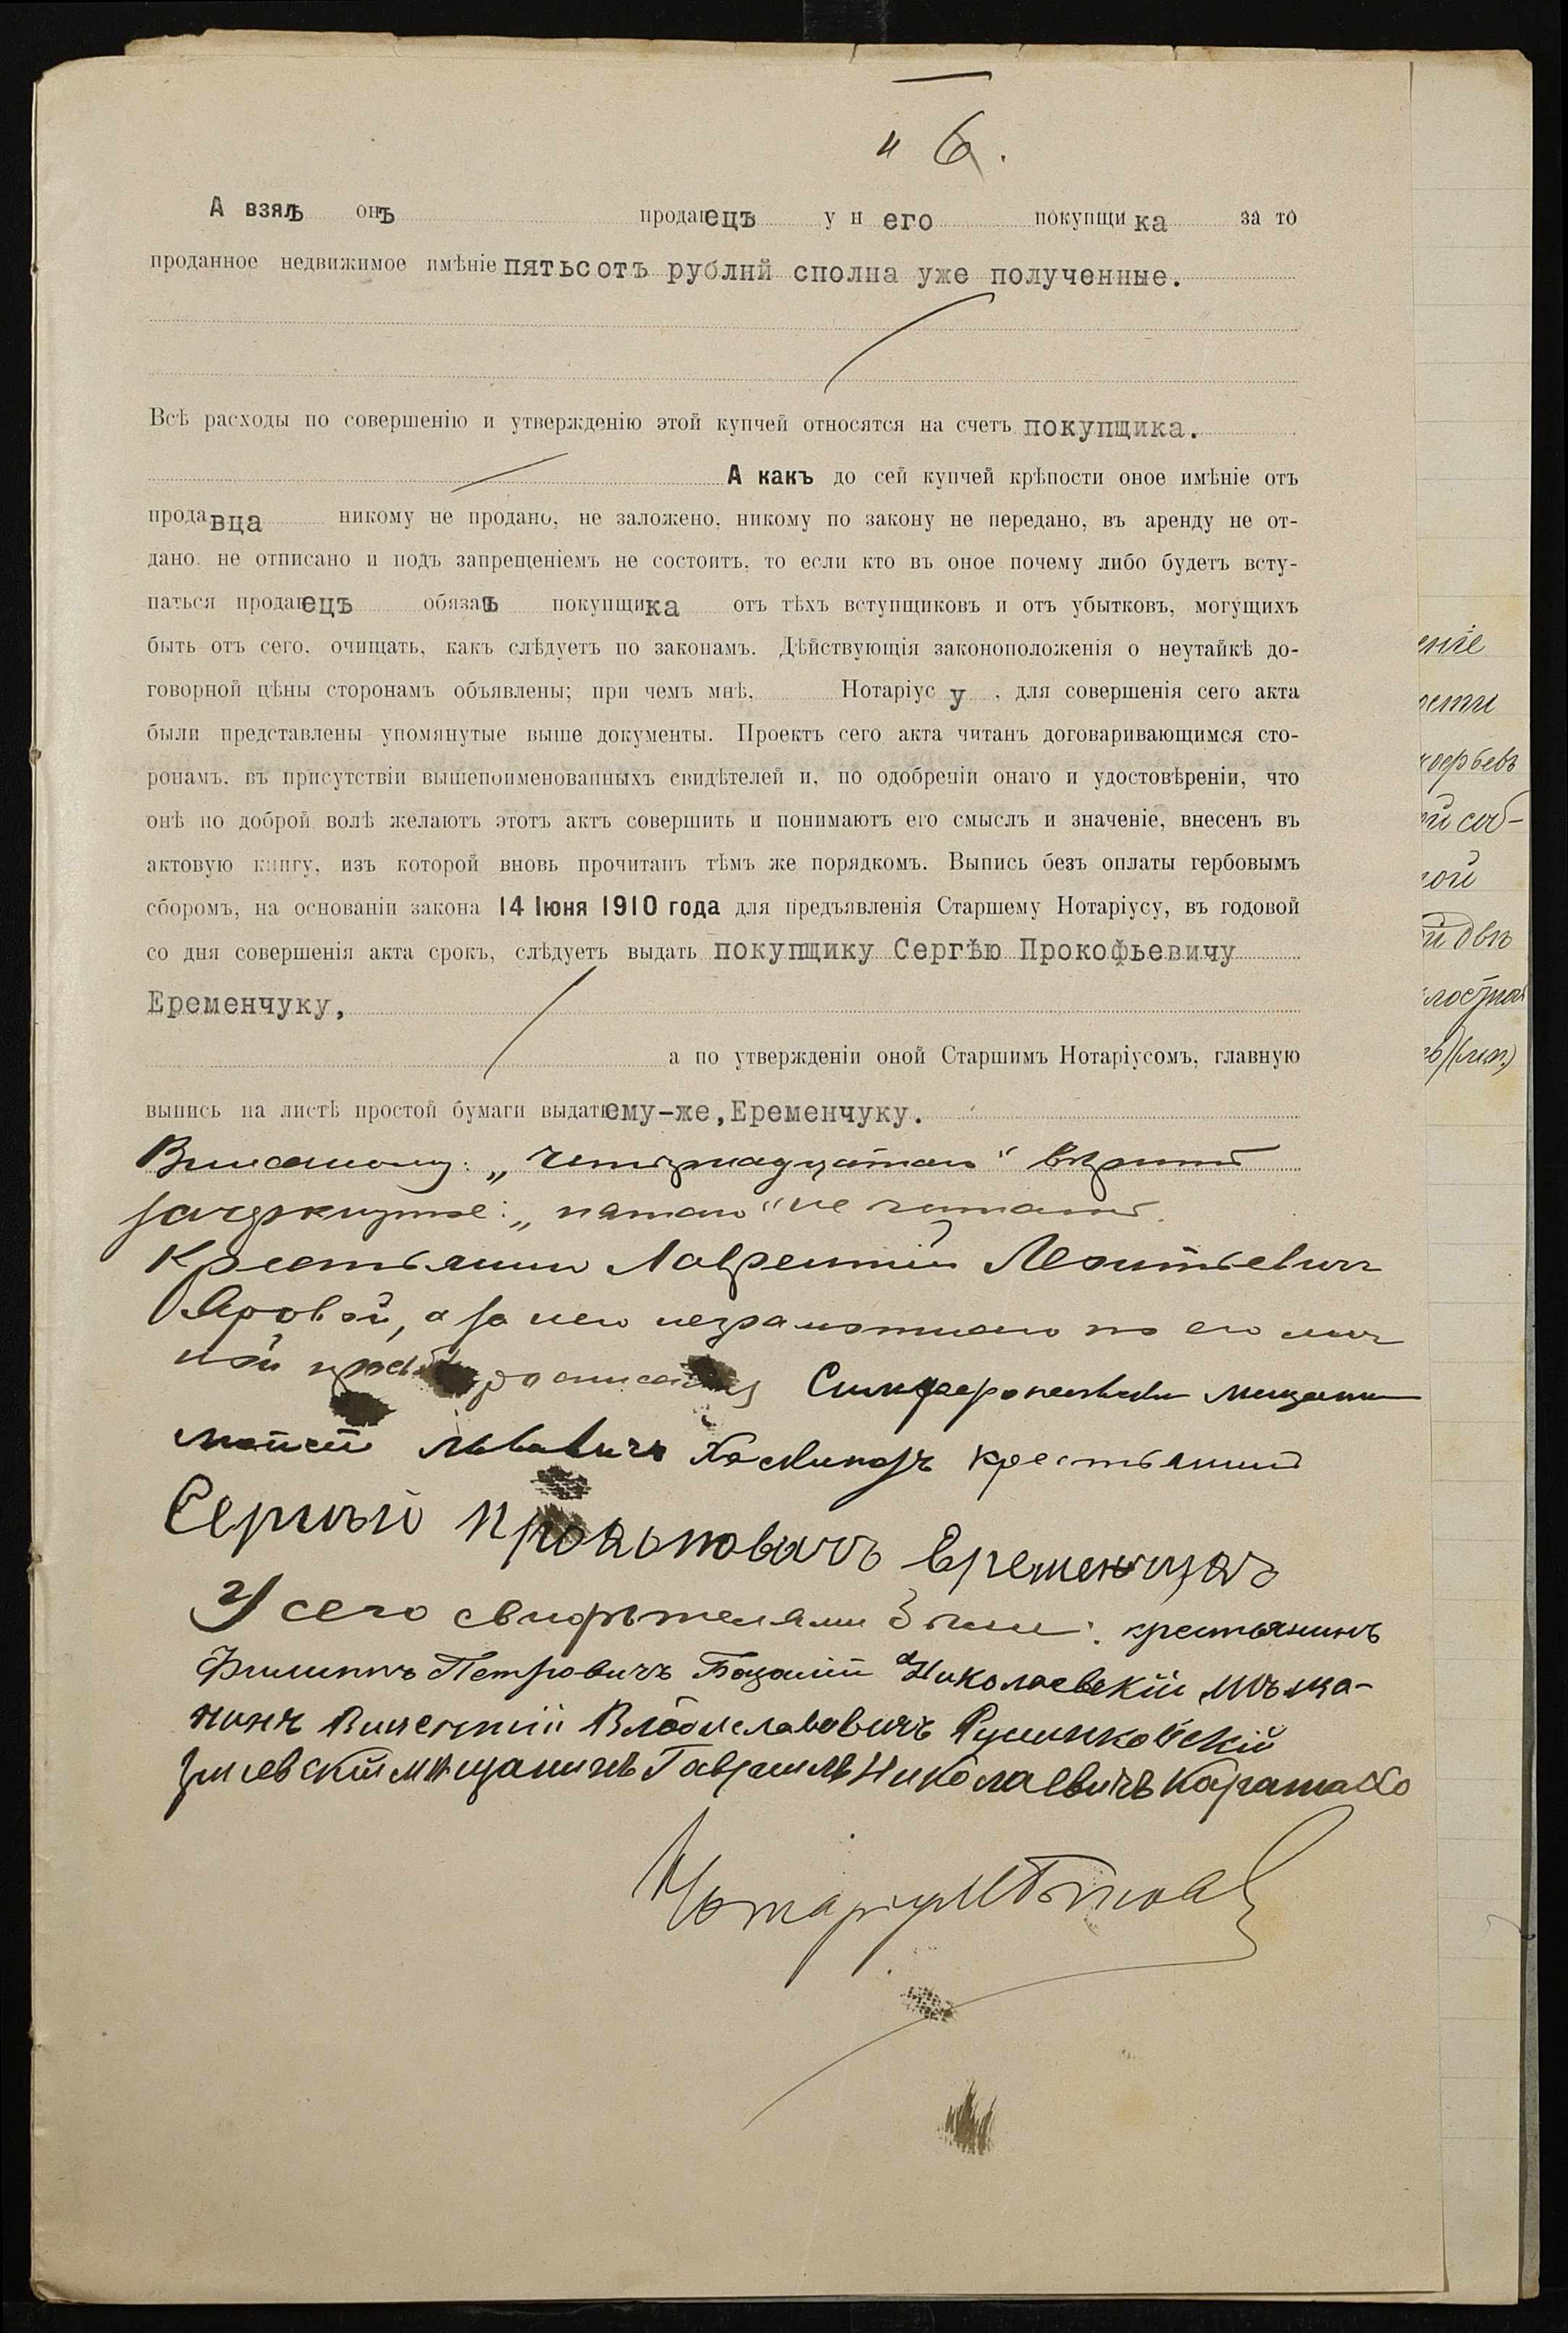 „ 6.
А взялъ онъ продавецъ у н его покупщи ка за то
проданное недвижимое имѣніе пятьсотъ рублий сполна уже полученные.
Всѣ расходы по совершенію и утвержденію этой купчей относятся на счетъ покупщика.
А какъ до сей купчей крѣпости оное имѣніе отъ
прода вца никому не продано, не заложено, никому по закону не передано, въ аренду не от-
дано, не отписано и подъ запрещеніемъ не состоитъ, то если кто въ оное почему либо будетъ всту-
паться продавецъ обязанъ покупщика отъ тѣхъ вступщиковъ и отъ убытковъ, могущихъ
быть отъ сего, очищать, какъ слѣдуетъ по законамъ. Дѣйствующія законоположенія о неутайкѣ до-
говорной цѣны сторонамъ объявлены; при чемъ мнѣ, Нотаріус у , для совершенія сего акта
были представлены упомянутые выше документы. Проектъ сего акта читанъ договаривающимся сто-
ронамъ, въ присутствіи вышепоименованныхъ свидѣтелей и, по одобреніи онаго и удостовѣреніи, что
онѣ по доброй волѣ желаютъ этотъ актъ совершить и понимаютъ его смыслъ и значеніе, внесенъ въ
актовую книгу, изъ которой вновь прочитанъ тѣмъ же порядкомъ. Выпись безъ оплаты гербовымъ
сборомъ, на основаніи закона 14 Іюня 1910 года для предъявленія Старшему Нотаріусу, въ годовой
со дня совершенія акта срокъ, слѣдуетъ выдать покупщику Сергѣю Прокофьевичу
Еременчуку,
а по утвержденіи оной Старшимъ Нотаріусомъ, главную
выпись на листѣ простой бумаги выдать ему-же, Еременчуку.
„четырнадцатаго" вѣрить
зачеркнутое: „пятаго" не читать.
Крестьянин Лаврентий Леонтьевич
Яровой, а за него неграмотного по его лич
ной росписался Симферопольский мещанин
Моисей Львовичъ крестьянин
Сергѣй Прокоповичъ Еременчукъ
У сего свидѣтелями были: крестьянинъ
Филиппъ Петровичъ Николаевскій мѣща-
нинъ Викентій Владиславовичъ
мѣщанинъ Гавріилъ Николаевичъ
Нотаріус
еніе
ой
двѣ